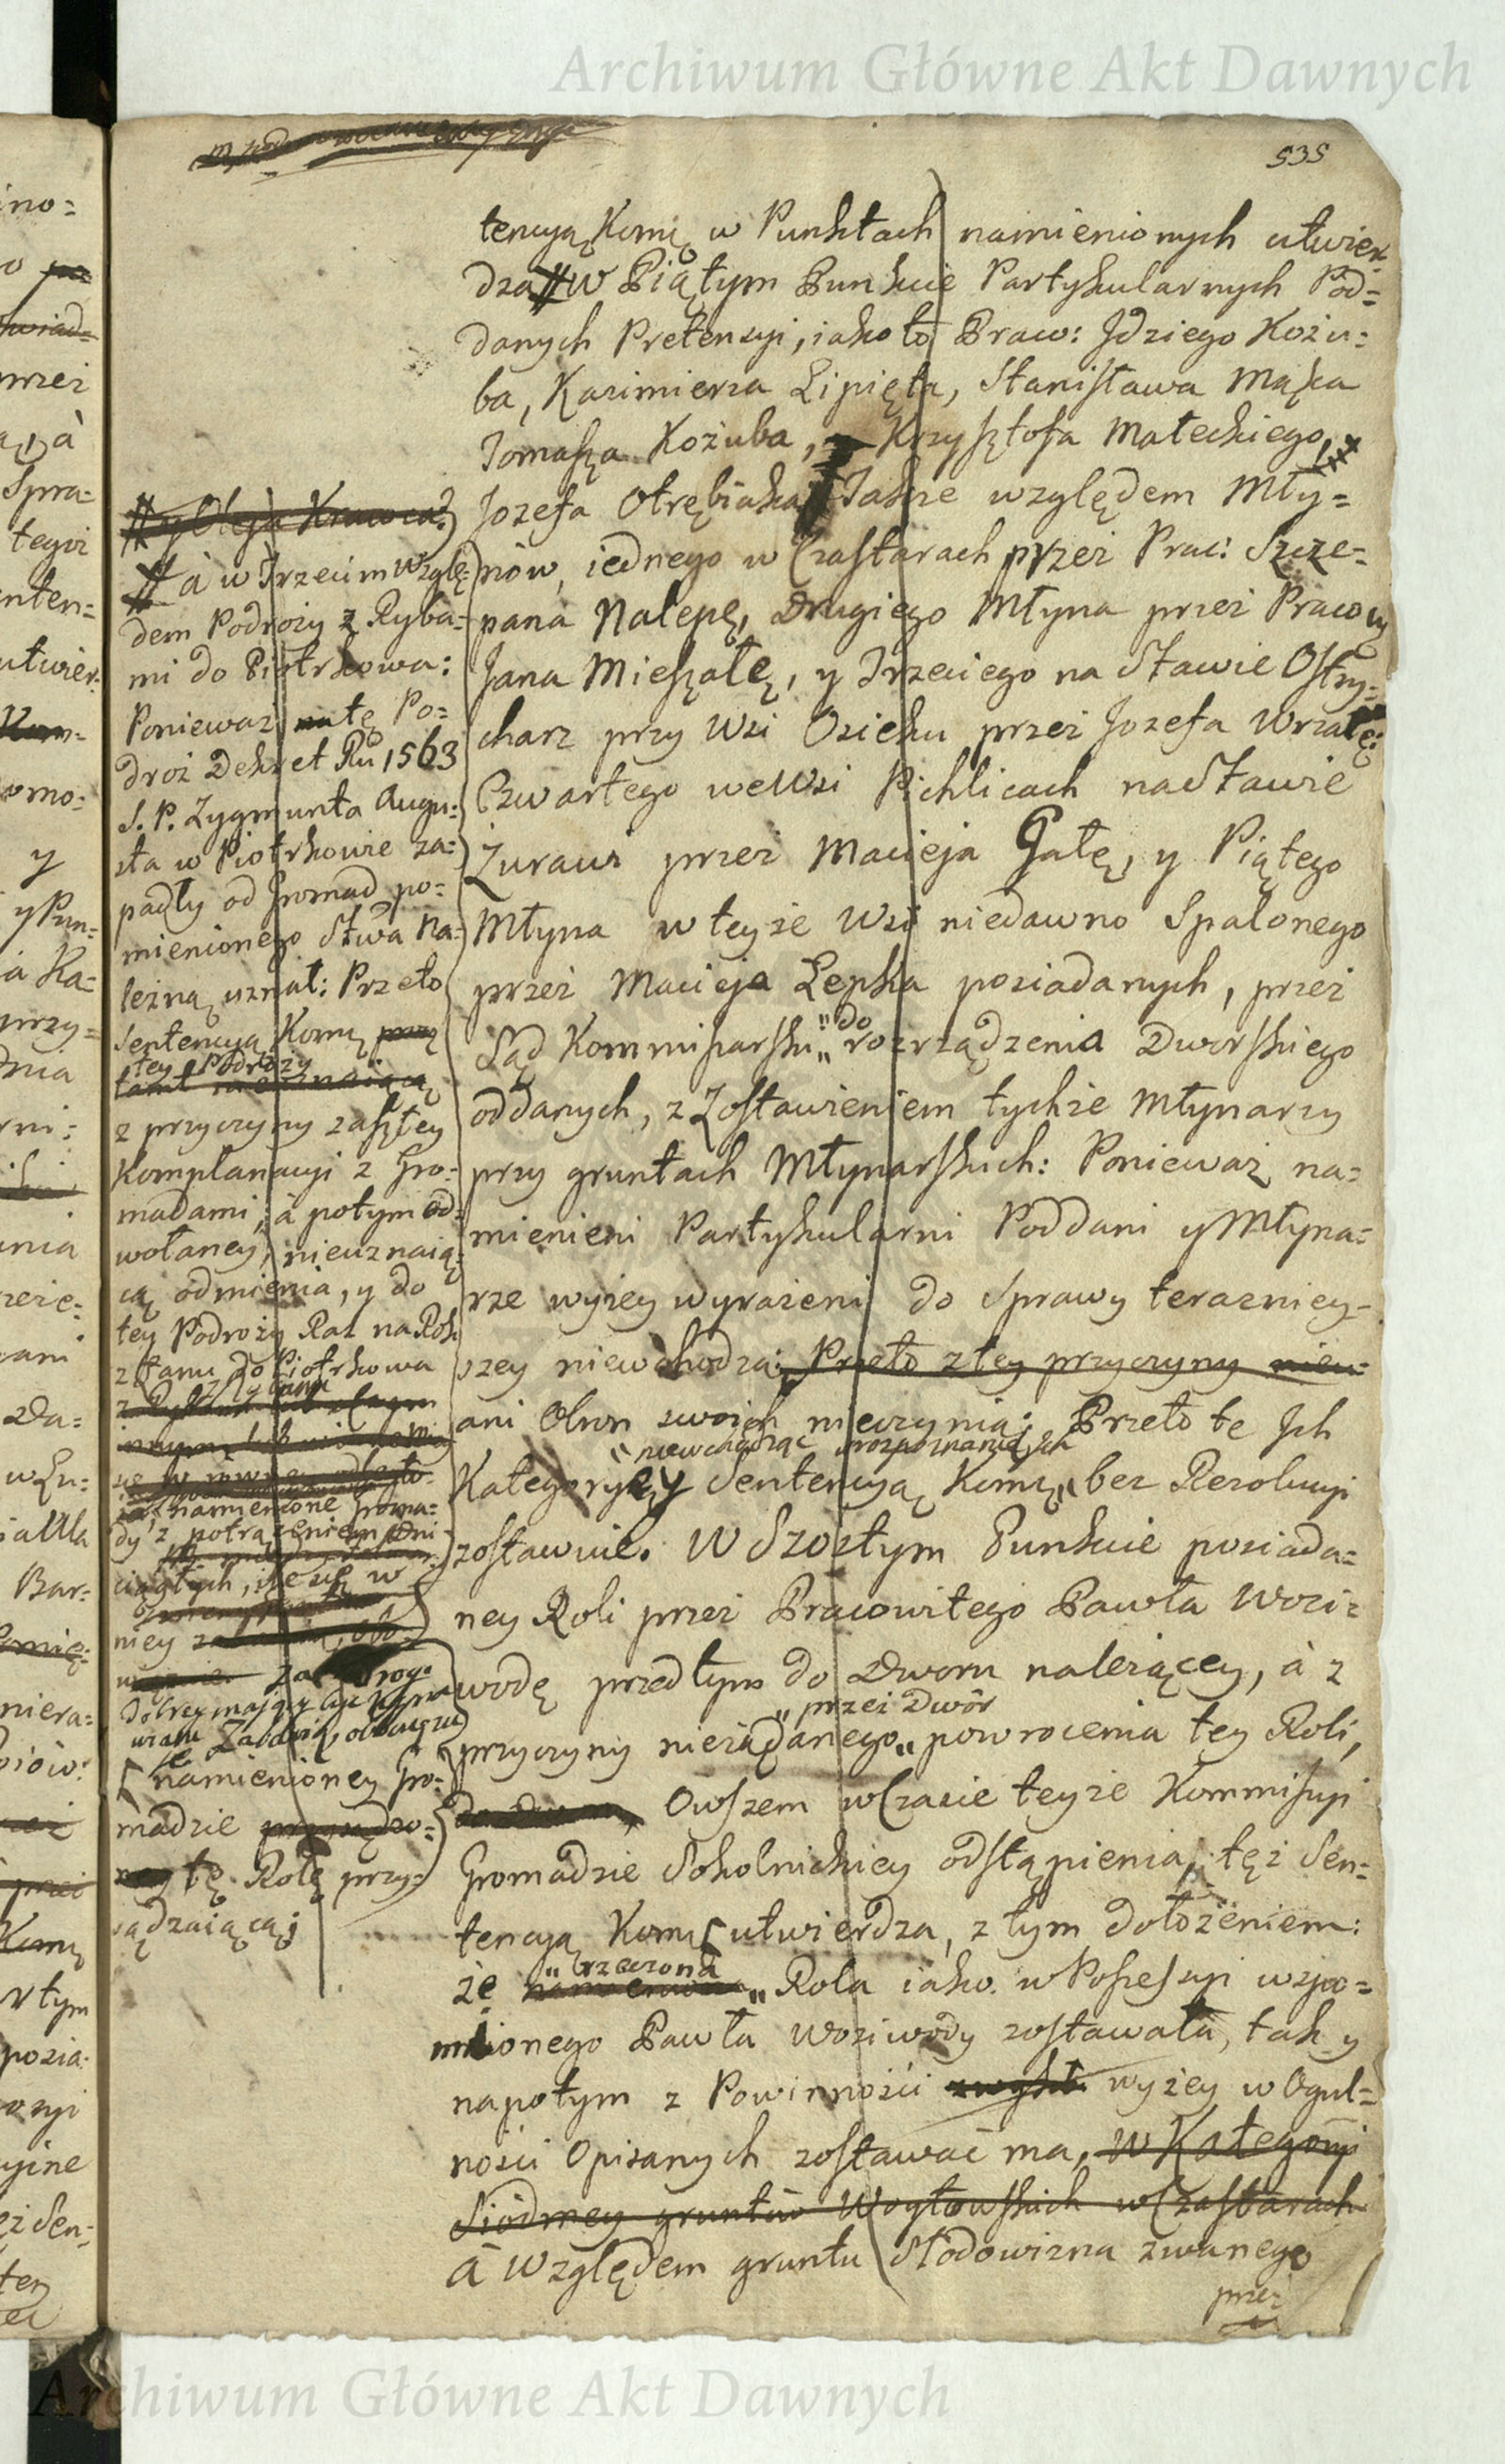 Archiwum Główne Akt Dawnych
535
tencyą Komı̨ w Punktach namienionych utwier-
dza # W Piątym Punkcie Partykularnych Pod=
danych Pretensyi, iako to Praw: Jdziego Kożu=
ba, Kazimierza Lipięta, Stanisława Mąka
Tomasza Kożuba, Krzysztofa Małeckiego,
Jozefa Otrębiaka Takze względem Mły=
nów, iednego w Czastarach przez Prac: Szcze=
pana Nalepę, Drugiego Młyna przez Pracow
Jana Mieszałę, y Trzeciego na Stawie Ostry=
charz przy Wsi Osieku przez Jozefa Wrzałę:
Czwartego we Wsi Pichlicach na Stawie
Żuraw przez Macieja Gałę, y Piątego
Młyna w teyże Wsi niedawno Spalonego
przez Macieja Lepka posiadanych, przez
Sąd Kommisarski „ do „ rozrządzenia Dworskiego
oddanych, z Zostawieniem tychże Młynarzy
przy gruntach Młynarskich: Ponieważ na=
mienieni Partykularni Poddani y Młyna=
rze wyżey wyrażeni do Sprawy terazniey-
szey niewchodzą; Przeto z tey przyczyny nieu=
ani Obron swoich nieczynią; Przeto te Jch
„ niewchodząc w rozpoznanie tych
Kategorye y Sentencyą Komı̨ „ bez Rezolucyi
zostawuie. W Szostym Punkcie posiada=
ney Roli przez Pracowitego Pawła Wozi=
wodę przedtym do Dworu należącey, à z
„ przez Dwór
przyczyny nieżądanego „ powrocenia tey Roli,
Owszem w Czasie teyże Kommisyi
Gromadzie Sokolnickiey odstąpienia, też Sen=
tencyą Komı̨ utwierdza, z tym dołożeniem:
„ rzeczona
że namieniona „ Rola iako w Possessyi wspo=
mnionego Pawła Woziwody zostawała, tak y
napotym z Powinności wyżey w Ogul=
ności Opisanych zostawać ma, W Kategoryi
Siódmey gruntów Woytowskich w Czastarach
à Względem gruntu Słodowizna zwanego
prze:
# y Oleja Krawca
# à w Trzecim Wzglę=
dem Podroży z Ryba=
mi do Piotrkowa:
Ponieważ tę Po=
droż Dekret Ru 1563
S. P. Zygmunta Augu=
sta w Piotrkowie za=
padły od Gromad po=
mienionego Stwa Na=
leżną uznał: Przeto
Sentencyą Komı̨
tey Podroży
z przyczyny zaszłey
Komplanacyi z Gro=
madami, à potym od=
wołaney, nieuznaią=
cą odmienia, y do
tey Podroży Raz na Rok
z Stanu do Piotrkowa
z Rybami
namienione Groma=
dy z potrąceniem Dni
ciągłych, ile się w
niey
zabawią, obowiązu
ie
namienioney Gro=
madzie przysądzo=
tę Rolę przy=
sądzaiącą;
Archiwum Główne Akt Dawnych